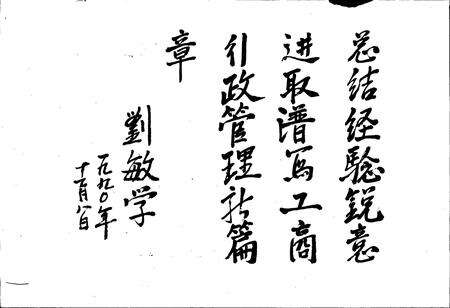 总结经验锐意
进取谱写工商
行政管理新篇
章
劉敏学
一九九〇年
十一月八日